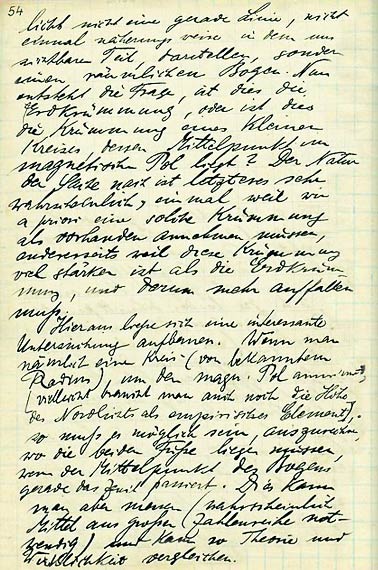 54
licht nicht eine gerade Linie, nicht
einmal näherungsweise in dem uns
sichtbaren Teil darstellen, sondern
einen räumlichen Bogen. Nun
entsteht die Frage, ist dies die
Erdkrümmung, oder ist dies
die Krümmung eines kleinen
Kreises dessen Mittelpunkt im
magnetischen Pol liegt? Der Natur
der Sache nach ist letzteres sehr
wahrscheinlich, einmal weil wir
a priori eine solche Krümmung
als vorhanden annehmen müssen,
andererseits weil diese Krümmung
viel stärker ist als die Erdkrüm-
mung, und darum mehr auffallen
muß.
Hieraus ließe sich eine interessante
Untersuchung aufbauen. Wenn man
nämlich eine Kreis (von bekanntem
Radius) um den magn. Pol annimmt,
(vielleicht braucht man auch noch die Höhe
des Nordlichts als empirisches Element),
so muß es möglich sein, auszurechnen,
wo die beiden Füße liegen müssen,
wenn der Mittelpunkt des Bogens
gerade das Zenit passiert. Dies kann
man aber messen (wahrscheinlich
Mittel aus großen Zahlenreihe not-
wendig) und kann so Theorie und
Wirklichkeit vergleichen.